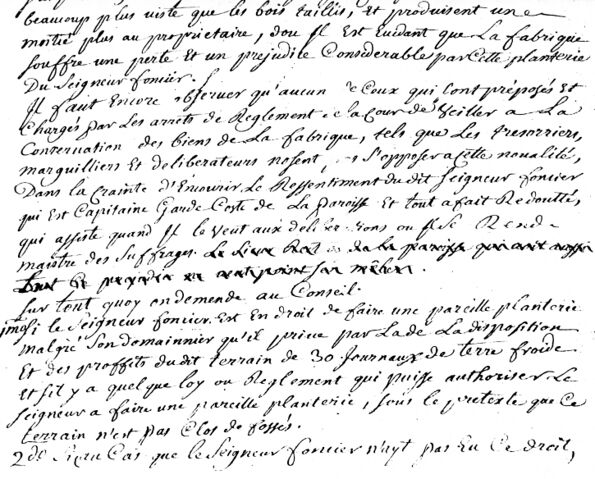 beaucoup plus viste que les bois taillis, Et produisent une
moitié plus au proprietaire, dou Il Est Evidant que La fabrique
souffre une perte Et un prejudice Considerable par Cette planterie
Du Seigneur foncier.
Il faut Encore observer qu'aucun de Ceux qui sont préposés Et
Chargés par Les arrets de Reglement de la Cour de Veiller a La
Conservation des biens de La fabrique, tels que Les tresorriers,
marguilliers Et deliberateurs nosent s'opposer a Cette noualité,
Dans la Crainte d'Encourir Le Ressentiment du dit Seigneur foncier
qui Est Capitaine Garde Coste de La paroisse Et tout a fait Redoutté,
qui assiste quand Il le veut aux deliberations ou Il Se Rend
maistre des Suffrages. Le Sieur de la paroisse
tout
Sur tout quoy on demende au Conseil.
1mo/ Si le Seigneur foncier Est En droit de faire une pareille planterie
malgré Son domainnier qu'il prive par La de La disposition
Et des proffits du dit terrain de 30 Journaux de terre froide
Et s'il y a quelque loy ou Reglement qui puisse authoriser Le
Seigneur a faire une pareille planterie, sous le pretexte que Ce
terrain n'est pas Clos de fossés.
2do Si au Cas que le Seigneur foncier n'ayt pas Eu Ce droit,